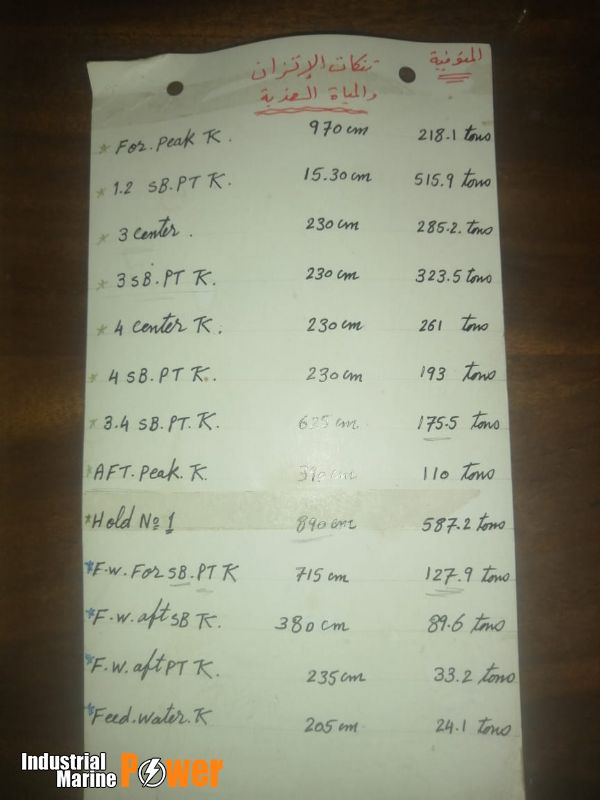 تنكات الإتزان
والمياة العذبة
المتوفية
* For. Peak TK. 970 cm 218.1 tons
* 1.2 SB.PT TK. 15.30 cm 515.9 tons
* 3 center. 230 cm 285.2. tons
* 3 SB.PT TK. 230 cm 323.5 tons
* 4 center TK. 230 cm 261 tons
* 4 SB.PT TK. 230 cm 193 tons
* 3.4 SB.PT.TK. 625 cm 175.5 tons
* AFT. Peak. TK. 390 cm 110 tons
* Hold No 1 890 cm 587.2 tons
* F.w. For SB.PT TK 715 cm 127.9 tons
* F.w. aft SB TK. 380 cm 89.6 tons
* F.w. aft PT TK. 235 cm 33.2 tons
* Feed.water.TK 205 cm 24.1 tons
Industrial
Marine Power